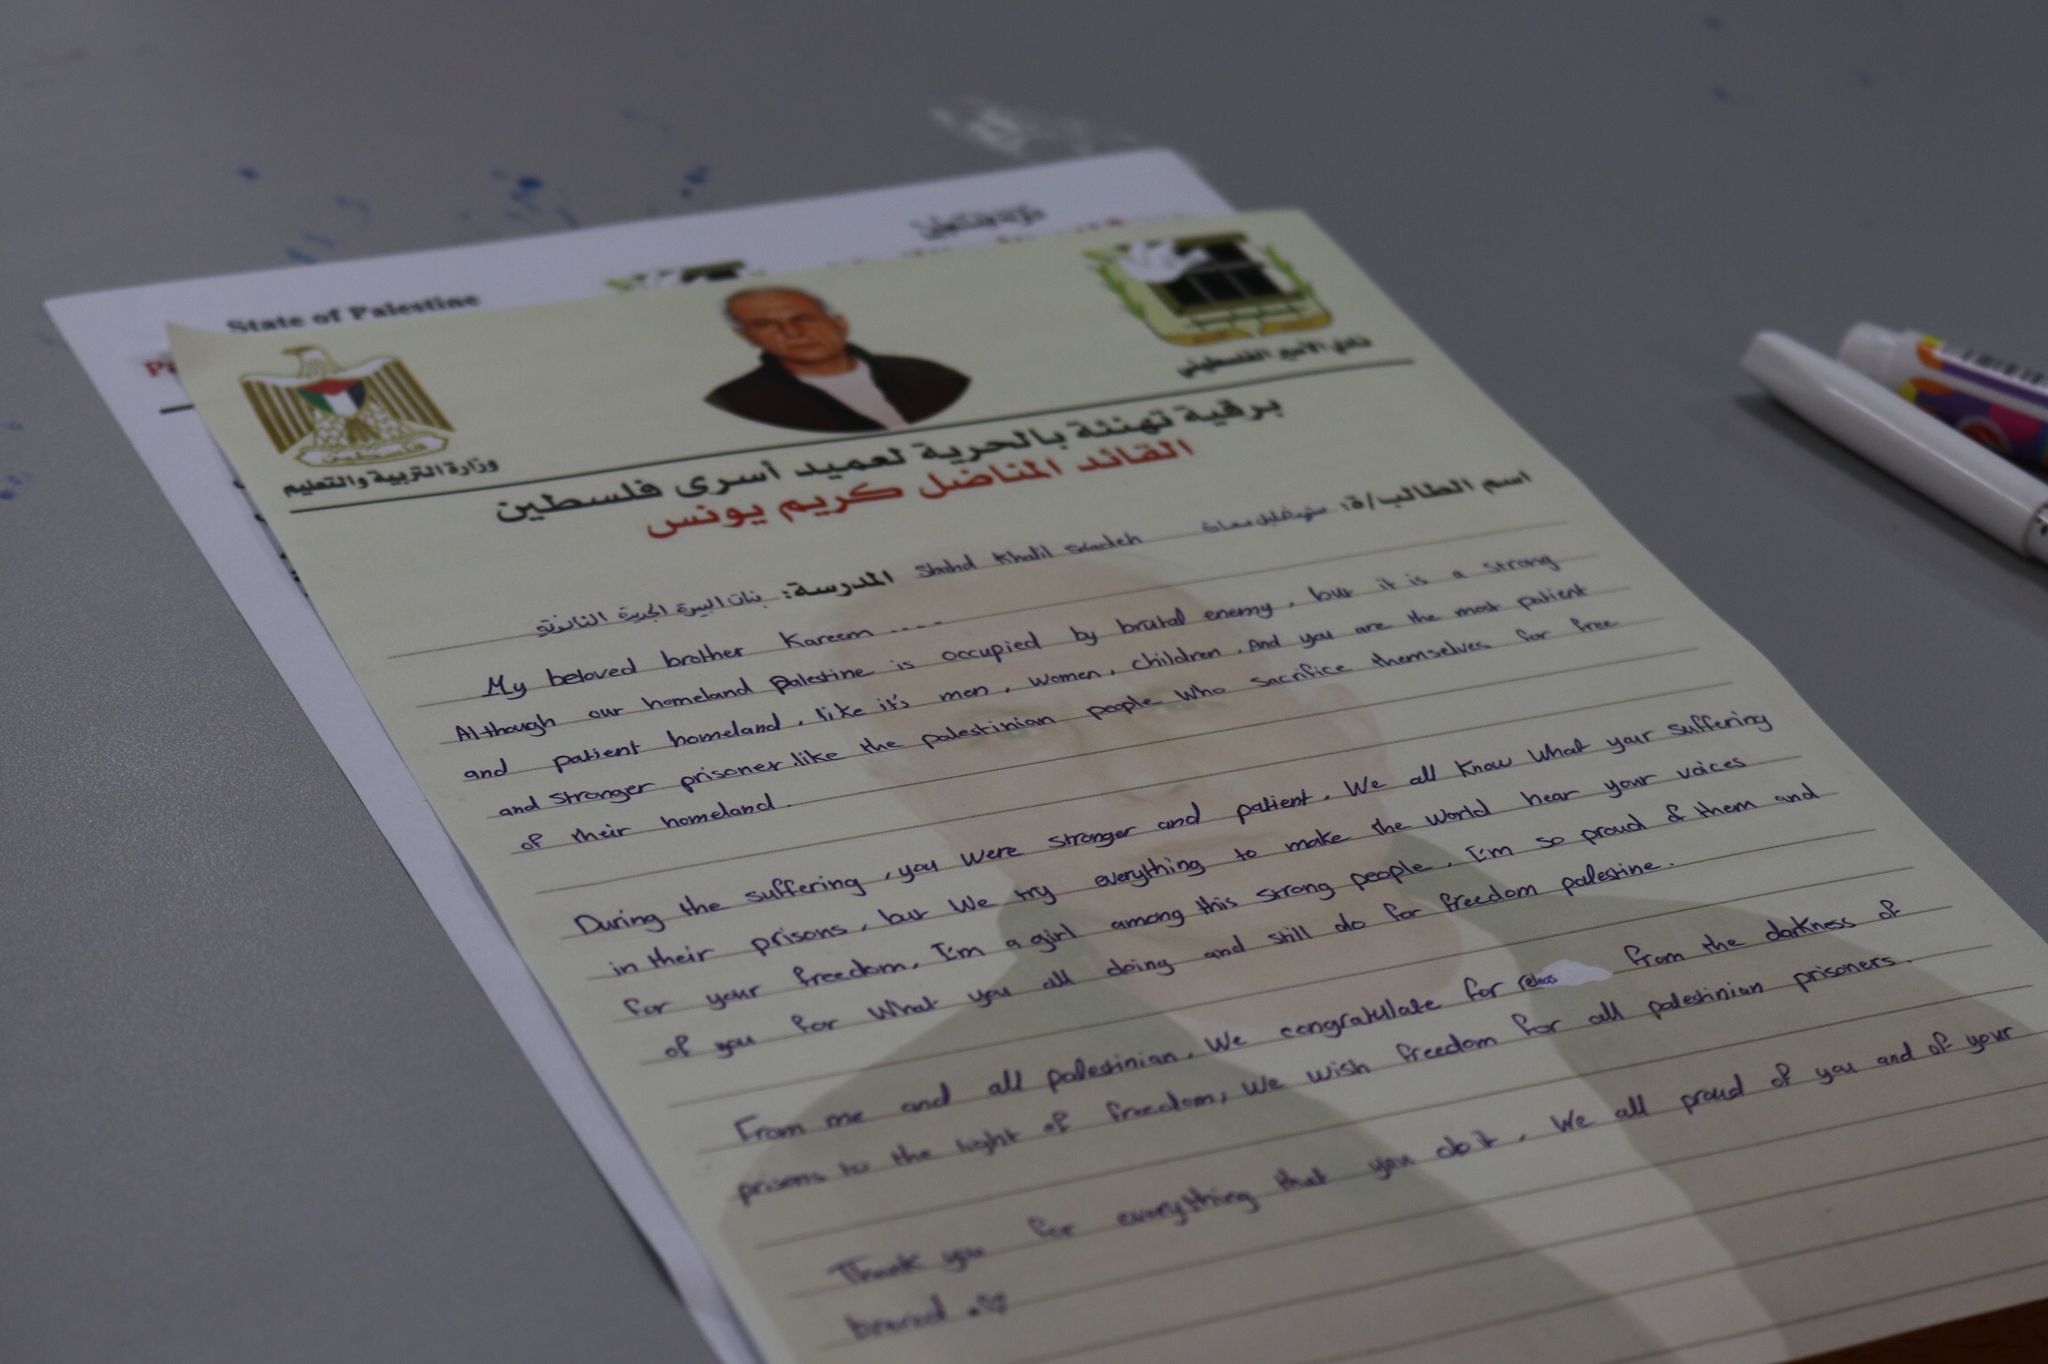 State of Palestine
فلسطين
وزارة التربية والتعليم
نادي الأسير الفلسطيني
برقية تهنئة بالحرية لعميد أسرى فلسطين
القائد المناضل كريم يونس
اسم الطالب/ة: Shahd Khalil
المدرسة: بنات البيرة الجديدة الثانوية
My beloved brother Kareem ....
Although our homeland palestine is occupied by brutal enemy, but it is a strong
and patient homeland, like it's men, women, children. And you are the most patient
and stronger prisoner, like the palestinian people who sacrifice themselves for free
of their homeland.
During the suffering, you were stronger and patient. We all know what your suffering
in their prisons, but we try everything to make the world hear your voices
for your freedom. I'm a girl among this strong people, I'm so proud of them and
of you for what you all doing and still do for freedom palestine.
From me and all palestinian, we congratulate for from the darkness of
prisons to the light of freedom, we wish freedom for all palestinian prisoners.
Thank you for everything that you do it. We all proud of you and of your